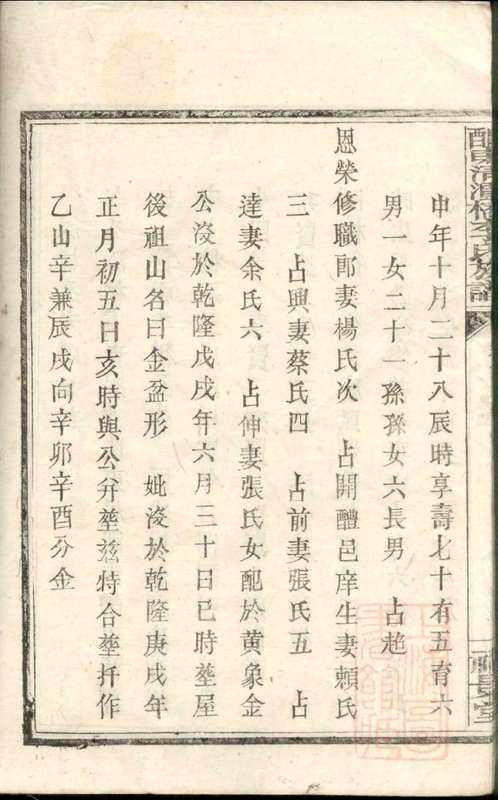 申年十月二十八辰時享壽七十有五育六
男一女二十一孫孫女六長男 占超
恩榮修職郎妻楊氏次 占開醴邑庠生妻賴氏
三 占興妻蔡氏四 占前妻張氏五 占
達妻余氏六 占伸妻張氏女配於黃象金
公沒於乾隆戊戌年六月三十日巳時塟屋
後祖山名曰金盆形 妣沒於乾隆庚戌年
正月初五日亥時與公分塟兹特合塟扦作
乙山辛兼辰戌向辛卯辛酉分金